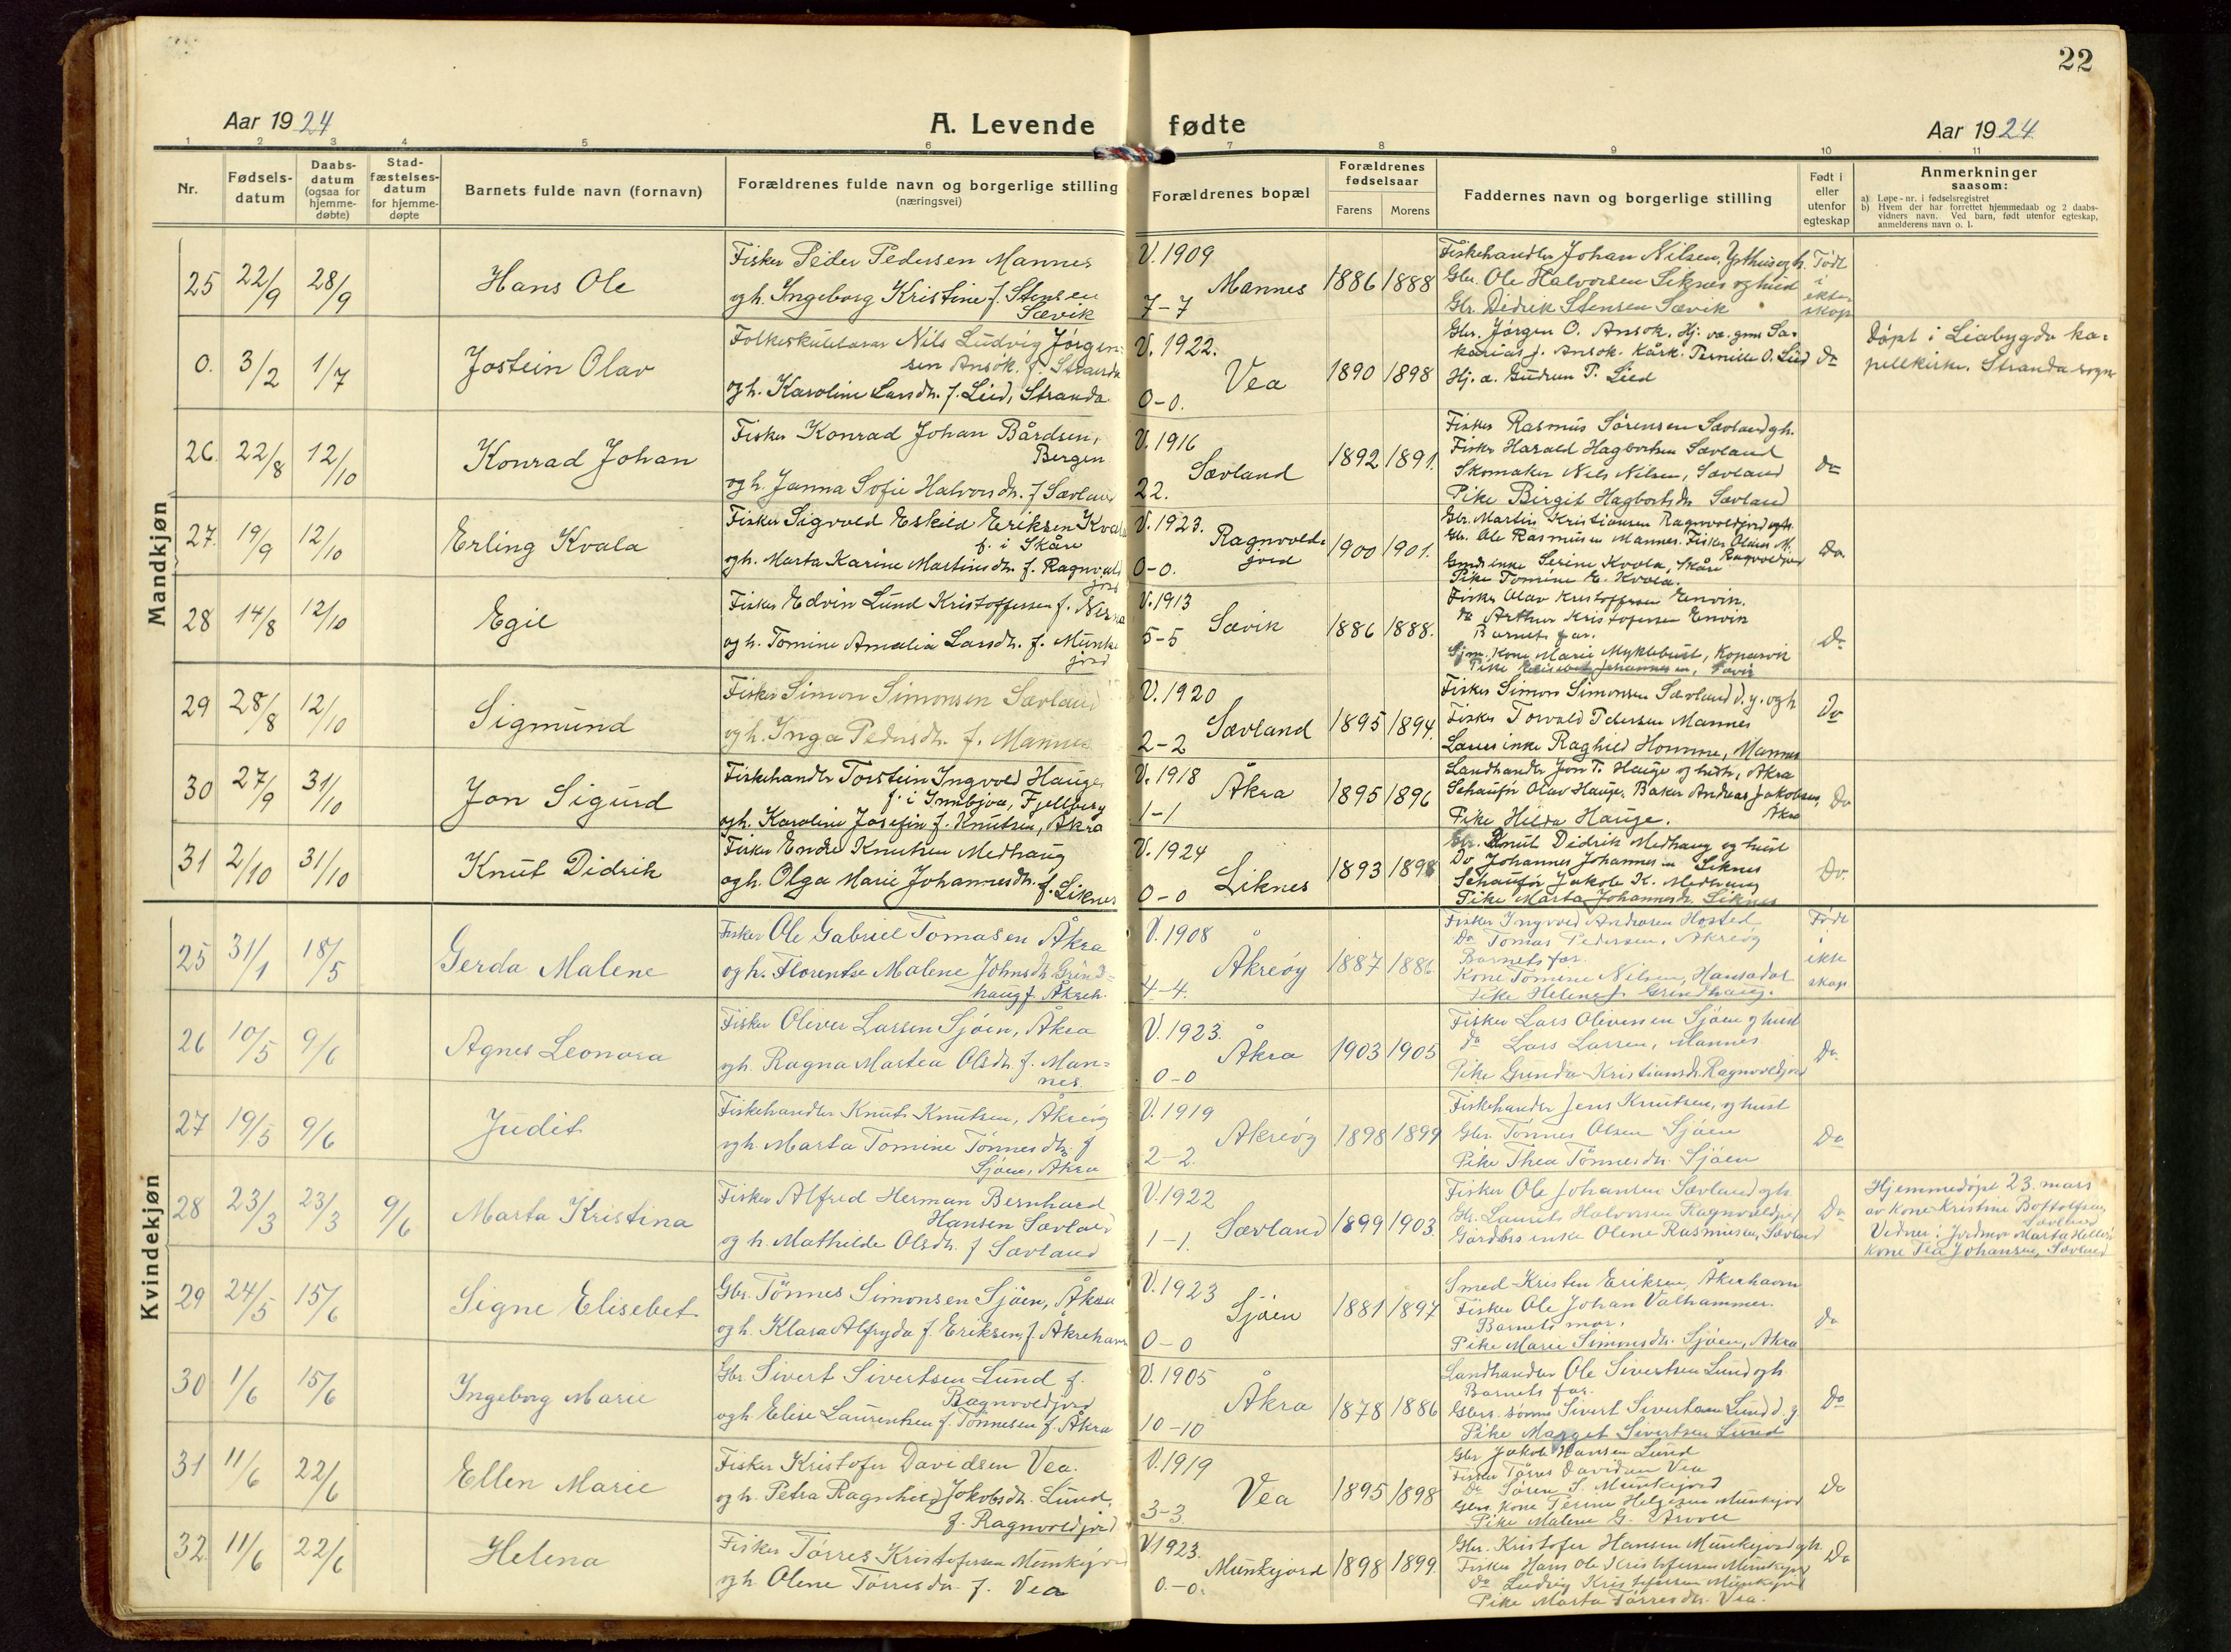 22
Aar 1924
A. Levende fødte
Aar 1924
1 2 3 4 5 6 7 8 9 10 11
Nr.
Fødsels-
datum
Daabs-
datum
(ogsaa for
hjemme-
døbte)
Stad-
fæstelses-
datum
for hjemme-
døpte
Barnets fulde navn (fornavn)
Forældrenes fulde navn og borgerlige stilling
(næringsvei)
Forældrenes bopæl
Forældrenes
fødselsaar
Farens Morens
Faddernes navn og borgerlige stilling
Født i
eller
utenfor
egteskap
Anmerkninger
saasom:
a) Løpe-nr. i fødselsregistret
b) Hvem der har forrettet hjemmedaab og 2 daabs-
vidners navn. Ved barn, født utenfor egteskap,
anmelderens navn o. l.
Mandkjøn
25 22/9 28/9 Hans Ole
Fisker Peder Pedersen Mannes
og h. Ingeborg Kristine f. Stensen
Sævik
V. 1909
Mannes
7-7
1886 1888
Fiskehandler Johan Nilsen, Ythus og h.
Gbr. Ole Halvorsen Liknes og hust
Gbr. Didrik Stensen Sævik
Født
i
ekte-
skap
0. 3/2 1/7 Jostein Olav
Folkeskulelærar Nils Ludvig Jørgen-
sen Ansok. f. Stranda
og h. Karoline Larsdtr. f. Lied, Stranda
V. 1922.
Vea
0-0.
1890 1898
Gbr. Jørgen O. Ansok. Hj. va. gnr Sa-
karias J. Ansok. Kårk. Pernille O. Lied
Hj. a. Gudrun P. Lied
Do
Døpt i Liabygda ka-
pellkirke. Stranda sogn
26. 22/8 12/10 Konrad Johan
Fisker Konrad Johan Bårdsen,
Bergen
og h. Janna Sofie Halvorsdtr. f Sævland
V. 1916
Sævland
22.
1892 1891.
Fisker Rasmus Sørensen Sævland og h.
Fisker Harald Hagbortsen Sævland
Skomaker Nils Nilsen, Sævland
Pike Birgit Hagbortsdtr Sævland
Do
27. 19/9 12/10 Erling Kvala
Fisker Sigvald Eskild Eriksen Kvala
f. i Skåre
og h. Marta Karine Martinsdtr. f. Ragnvald
jord
V. 1923.
Ragnvold-
jord
0-0.
1900 1901.
Gbr. Martin Kristiansen Ragnvoldjord og h.
Gbr. Ole Rasmussen Mannes. Fisker Olaus M.
Ragnvoldjord
Gmds enke Serine Kvala, Skåre
Pike Tomine E. Kvala.
Do
28 14/8 12/10 Egil
Fisker Edvin Lund Kristoffersen f.
og h. Tomine Amalia Larsdtr. f. Munke
jord
V. 1913
Sævik
5-5
1886 1888.
Fisker Olav Kristoffersen
Do Arthur Kristofersen
Barnets far.
Sjm. kone Marie Myklebust, Kopervik
Pike Elisabet Johannesen, Sævik
Do
29 28/8 12/10 Sigmund
Fisker Simon Simonsen Sævland
og h. Inga Pedersdtr. f. Mannes
V. 1920
Sævland
2-2
1895 1894.
Fisker Simon Simonsen Sævland d.y. og h
Fisker Torvald Pedersen Mannes
enke Raghild Homme, Mannes
Do
30 27/9 31/10 Jon Sigurd
Fiskehandler Torstein Ingvold Hauge
f. i Imbjoa, Fjelberg
og h. Karoline Josefin f. Knutsen, Åkra
V. 1918
Åkra
1-1
1895 1896
Landhandler Jon T. Hauge og hustr, Åkra
Schaufør Olav Hauge. Baker Andreas Jakobsen,
Åkra
Pike Hilda Hauge.
Do
31 2/10 31/10 Knut Didrik
Fisker Endre Knutsen Medhaug
og h. Olga Marie Johannesdtr. f. Liknes
V. 1924
Liknes
0-0
1893 1898
Gbr. Knut Didrik Medhaug og hust
Do Johannes Johannessen Liknes
Schaufør Jakob K. Medhaug
Pike Marta Johannesdtr. Liknes
Do.
Kvindekjøn
25 31/1 18/5 Gerda Malene
Fisker Ole Gabriel Tomasen Åkra
og h. Florentse Malene Johnsdtr. Grind-
haug f. Åkreh.
V. 1908
Åkreøy
4-4.
1887 1886.
Fisker Ingvold Andreasen Hosted,
Do Tomas Pedersen, Åkreøy
Barnets far.
Kone Tomine Nilsen, Hansadal
Pike Helene J. Grindhaug.
Født
i
ekte
skap
26 10/5 9/6 Agnes Leonora
Fisker Oliver Larsen Sjøen, Åkra
og h. Ragna Martea Olsdtr. f. Man-
nes.
V. 1923.
Åkra
0-0
1903 1905
Fisker Lars Oliversen Sjøen og hust
Do Lars Larsen, Mannes
Pike Gunda Kristiansdtr. Ragnvoldjord
Do
27 19/5 9/6 Judit
Fiskehandler Knut Knutsen, Åkreøy
og h. Marta Tomine Tønnesdtr. f
Sjøen, Åkra
V. 1919
Åkreøy
2-2.
1898 1899
Fiskehandler Jens Knutsen, og hust
Gbr. Tønnes Olsen Sjøen
Pike Thea Tønnesdtr. Sjøen
Do
28 23/3 23/3 9/6 Marta Kristina
Fisker Alfred Herman Bernhard
Hansen Sævland
og h. Mathilde Olsdtr. f Sævland
V. 1922
Sævland
1-1.
1899 1903.
Fisker Ole Johansen Sævland og h.
Gbr. Laurits Halvorsen Ragnvoldjord
Gårdbrs enke Olene Rasmussen, Sævland
Do
Hjemmedøpt 23. mars
av kone Kristine Bottolfsen,
Sævland
Vidner: Jordmor Marta
kone Tea Johansen, Sævland
29 24/5 15/6 Signe Elisebet
Gbr. Tønnes Simonsen Sjøen, Åkra
og h. Klara Alfryda f. Eriksen, f. Åkrehavn
V. 1923
Sjøen
0-0
1881 1897
Smed Kristen Eriksen, Åkrehavn
Fisker Ole Johan Valhammer.
Barnets mor.
Pike Marie Simonsdtr. Sjøen, Åkra
Do
30 1/6 15/6 Ingeborg Marie
Gbr. Sivert Sivertsen Lund f.
Ragnvoldjord
og h. Elise Laurentsen f. Tønnesen f. Åkra
V. 1905
Åkra
10-10
1878 1886
Landhandler Ole Sivertsen Lund og h.
Barnets far.
Gbrs. sønn Sivert Sivertsen Lund d. y.
Pike Marget Sivertsen Lund
Do
31 11/6 22/6 Ellen Marie
Fisker Kristofer Davidsen Vea.
og h. Petra Ragnhild Jakobsdtr. Lund,
f. Ragnvoldjord
V. 1919
Vea
3-3.
1895 1898
Gbr Jakob Hansen Lund
Fisker Tørres Davidsen Vea
Do Søren S. Munkejord
Gbrs. kone Terine Helgesen Munkejord
Pike Malene G.
Do
32 11/6 22/6 Helena
Fisker Tørres Kristofersen Munkejord
og h. Olene Tørresdtr. f. Vea
V. 1923.
Munkejord
0.-0.
1898 1899.
Gbr. Kristofer Hansen Munkejord og h.
Fisker Hans Ole Kristofersen Munkejord
Do Ludvig Kristofersen Munkejord
Pike Marta Tørresdtr. Vea.
Do